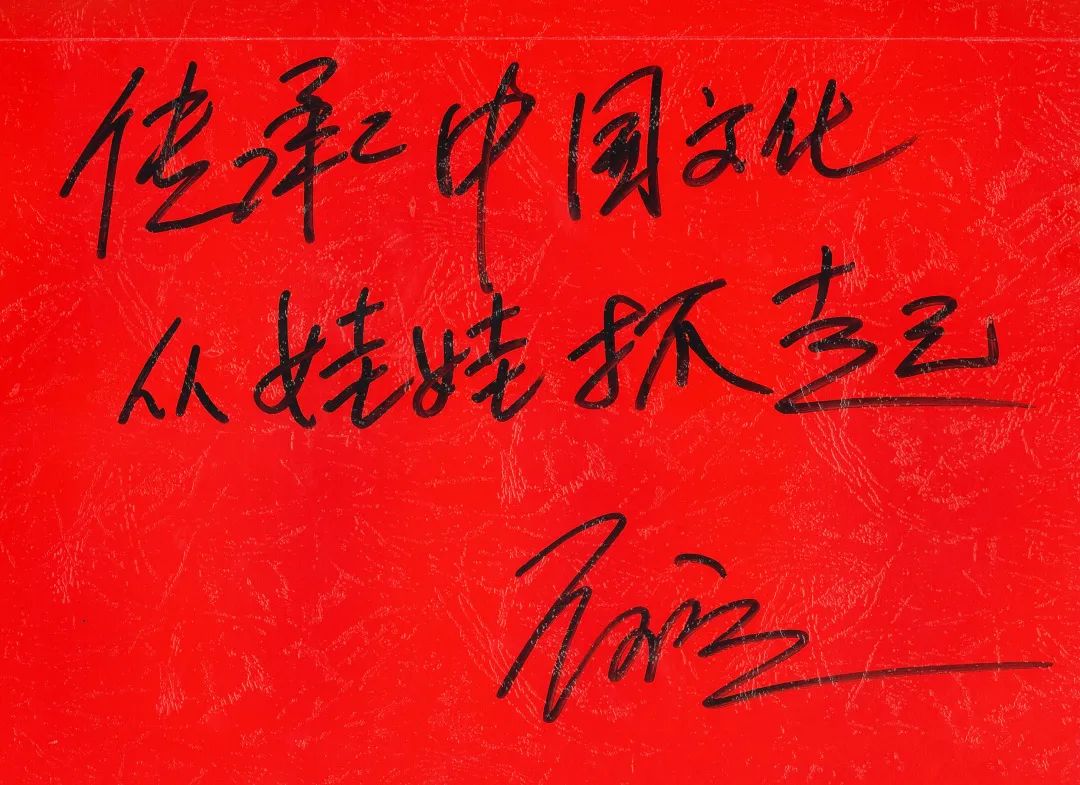 传承中国文化
从娃娃抓起